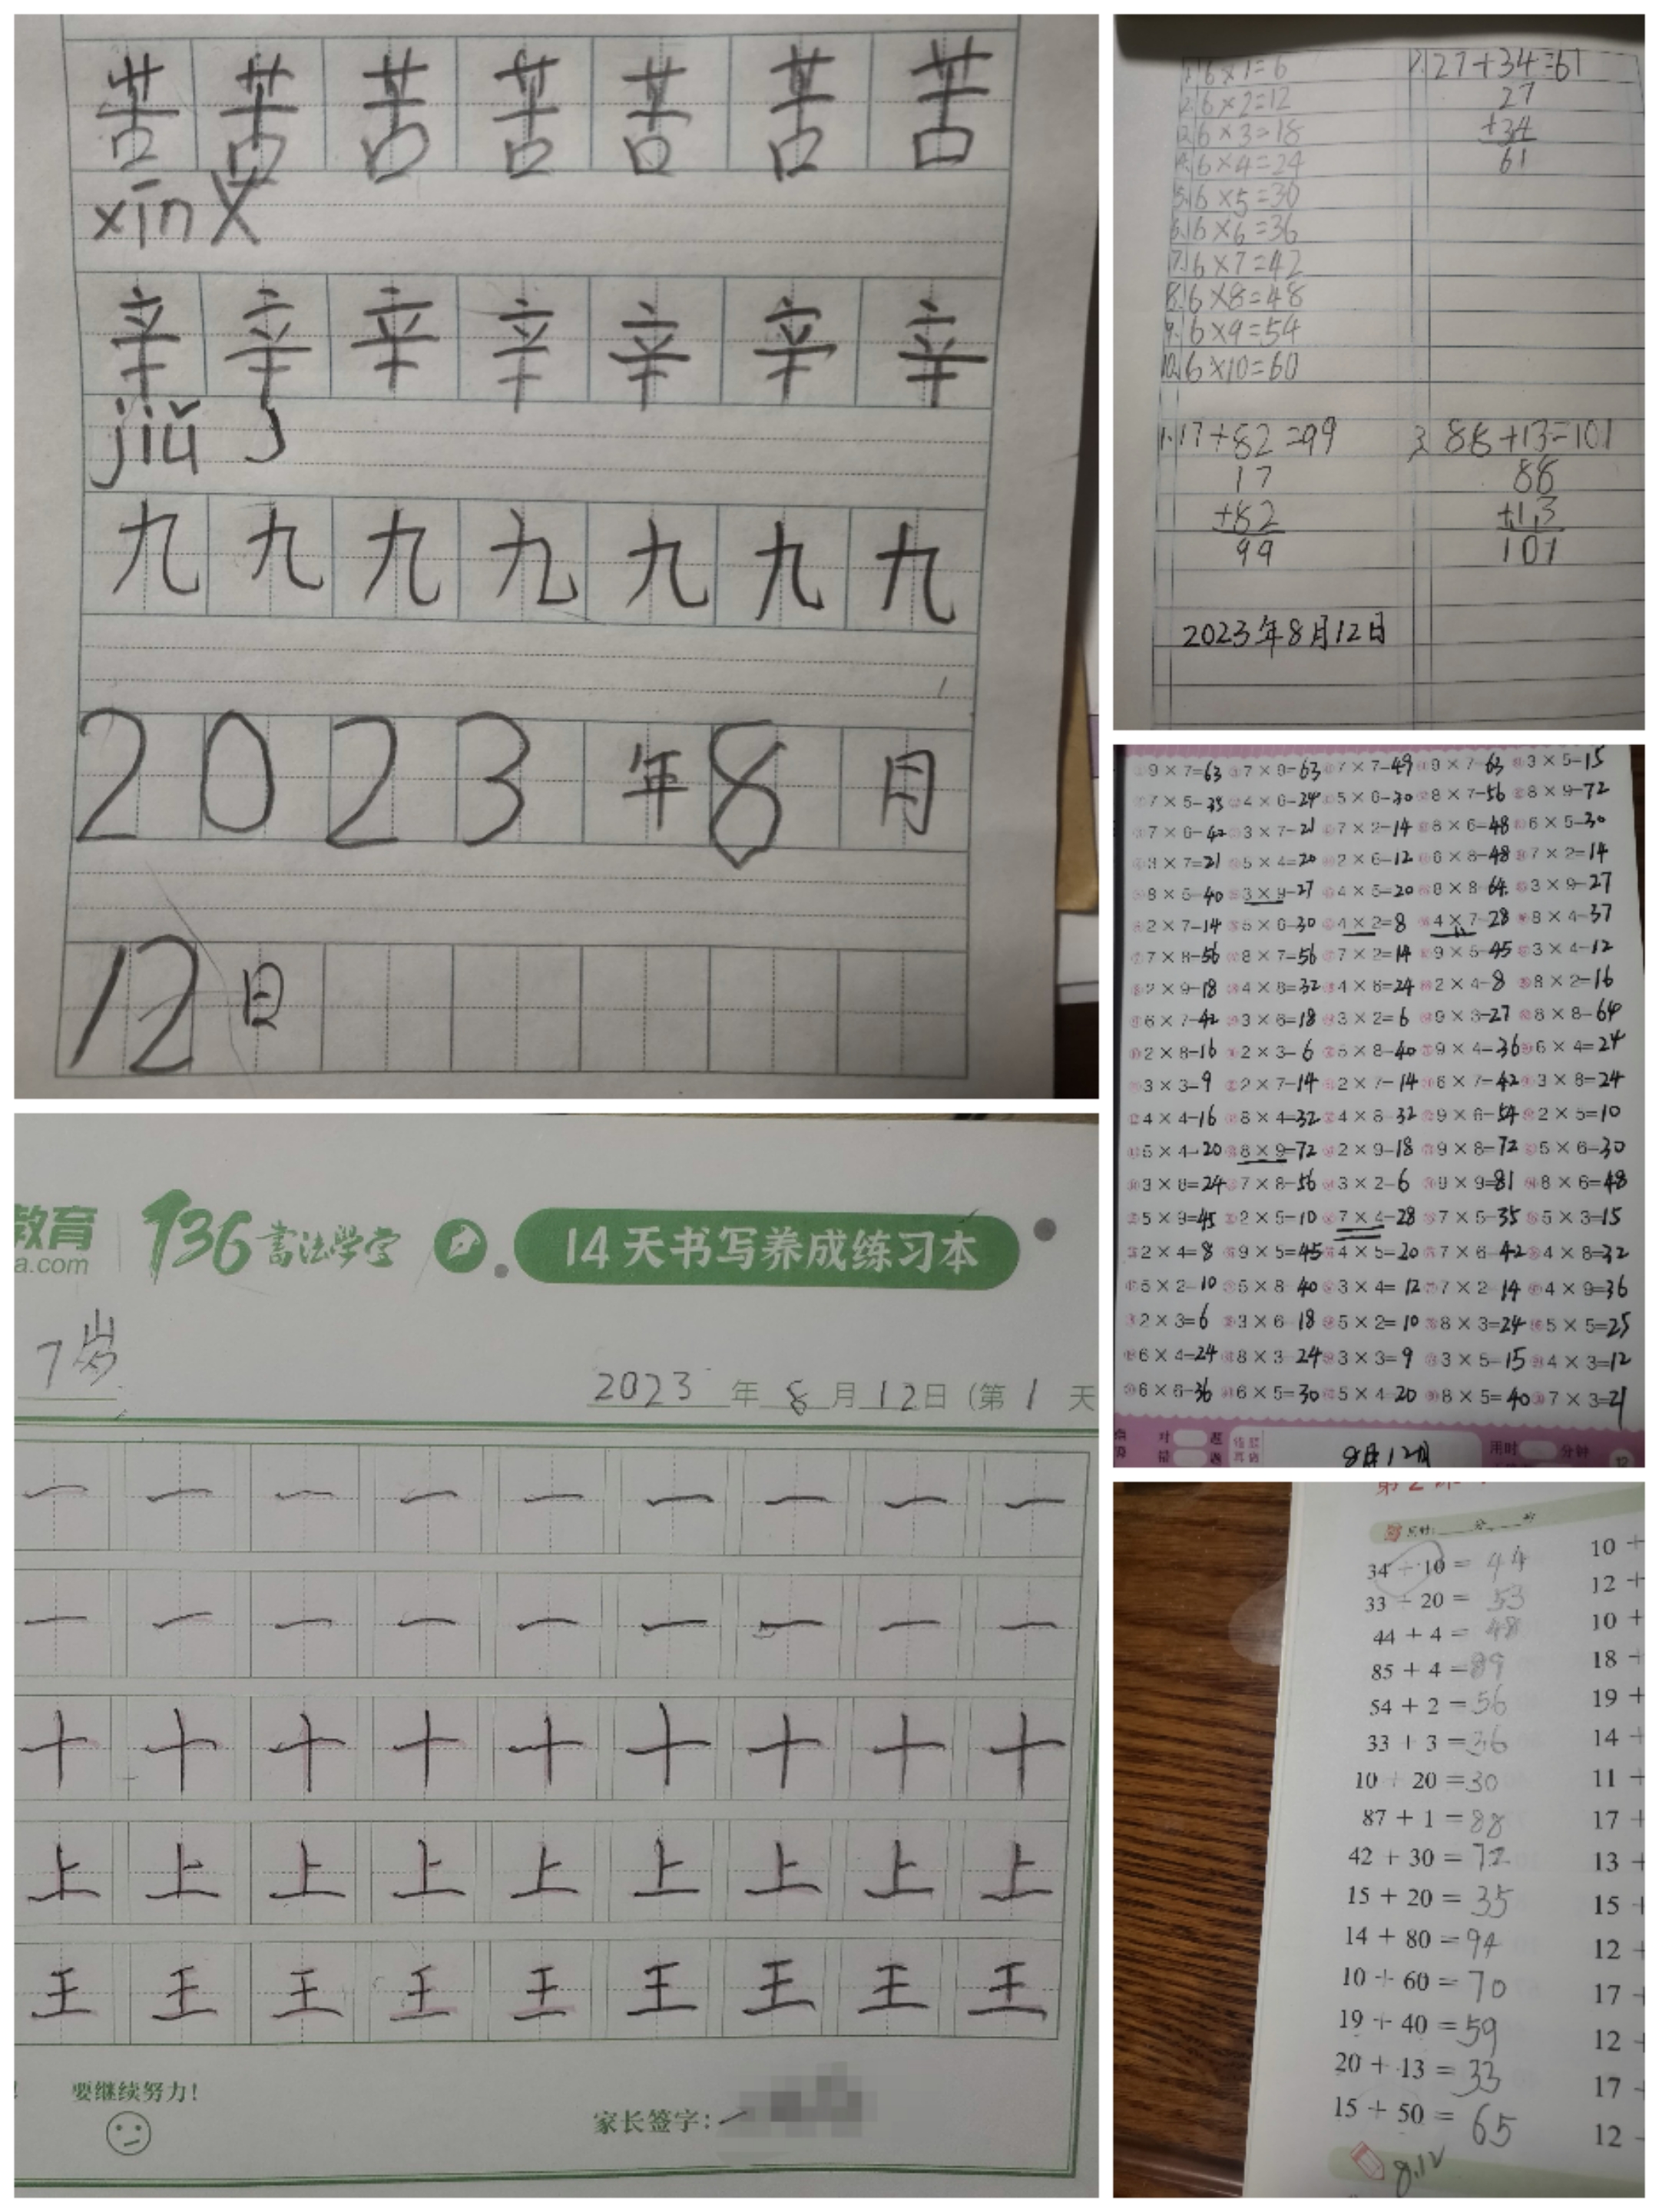 苦 苦 苦 苦 苦 苦 苦
xīn X
辛 辛 辛 辛 辛 辛 辛
jiǔ J
九 九 九 九 九 九 九
2 0 2 3 年 8 月
12 日
1. 6×1=6
2. 6×2=12
3. 6×3=18
4. 6×4=24
5. 6×5=30
6. 6×6=36
7. 6×7=42
8. 6×8=48
9. 6×9=54
10. 6×10=60
2. 27+34=61
27
+34
61
1. 17+82=99
17
+82
99
3. 88+13=101
88
+13
101
2023年8月12日
9×7=63 7×9=63 7×7=49 9×7=63 3×5=15
7×5=35 4×6=24 5×6=30 8×7=56 8×9=72
7×6=42 3×7=21 7×2=14 8×6=48 6×5=30
3×7=21 5×4=20 2×6=12 6×8=48 7×2=14
8×5=40 3×9=27 4×5=20 8×8=64 3×9=27
2×7=14 5×6=30 4×2=8 4×7=28 8×4=37
7×8=56 8×7=56 7×2=14 9×5=45 3×4=12
2×9=18 4×8=32 4×6=24 2×4=8 8×2=16
6×7=42 3×6=18 3×2=6 9×3=27 8×8=64
2×8=16 2×3=6 5×8=40 9×4=36 6×4=24
3×3=9 2×7=14 2×7=14 6×7=42 3×8=24
4×4=16 8×4=32 4×8=32 9×6=54 2×5=10
5×4=20 8×9=72 2×9=18 9×8=72 5×6=30
3×8=24 7×8=56 3×2=6 9×9=81 8×6=48
5×9=45 2×5=10 7×4=28 7×5=35 5×3=15
2×4=8 9×5=45 4×5=20 7×6=42 4×8=32
5×2=10 5×8=40 3×4=12 7×2=14 4×9=36
2×3=6 3×6=18 5×2=10 8×3=24 5×5=25
6×4=24 8×3=24 3×3=9 3×5=15 4×3=12
6×6=36 6×5=30 5×4=20 8×5=40 7×3=21
对 题 错 题 8月12日 用时 分钟
教育 136書法學堂 14天书写养成练习本
a.com
7岁
2023年8月12日(第1天
一 一 一 一 一 一 一 一 一
一 一 一 一 一 一 一 一 一
十 十 十 十 十 十 十 十 十
上 上 上 上 上 上 上 上 上
王 王 王 王 王 王 王 王 王
要继续努力!
家长签字:
34 + 10 = 44 10 +
33 + 20 = 53 12 +
44 + 4 = 48 10 +
85 + 4 = 89 18
54 + 2 = 56 19 +
33 + 3 = 36 14
10 + 20 = 30 11
87 + 1 = 88 17
42 + 30 = 72 13
15 + 20 = 35 15
14 + 80 = 94 12
10 + 60 = 70 17
19 + 40 = 59 12
20 + 13 = 33 17
15 + 50 = 65 12
8.12